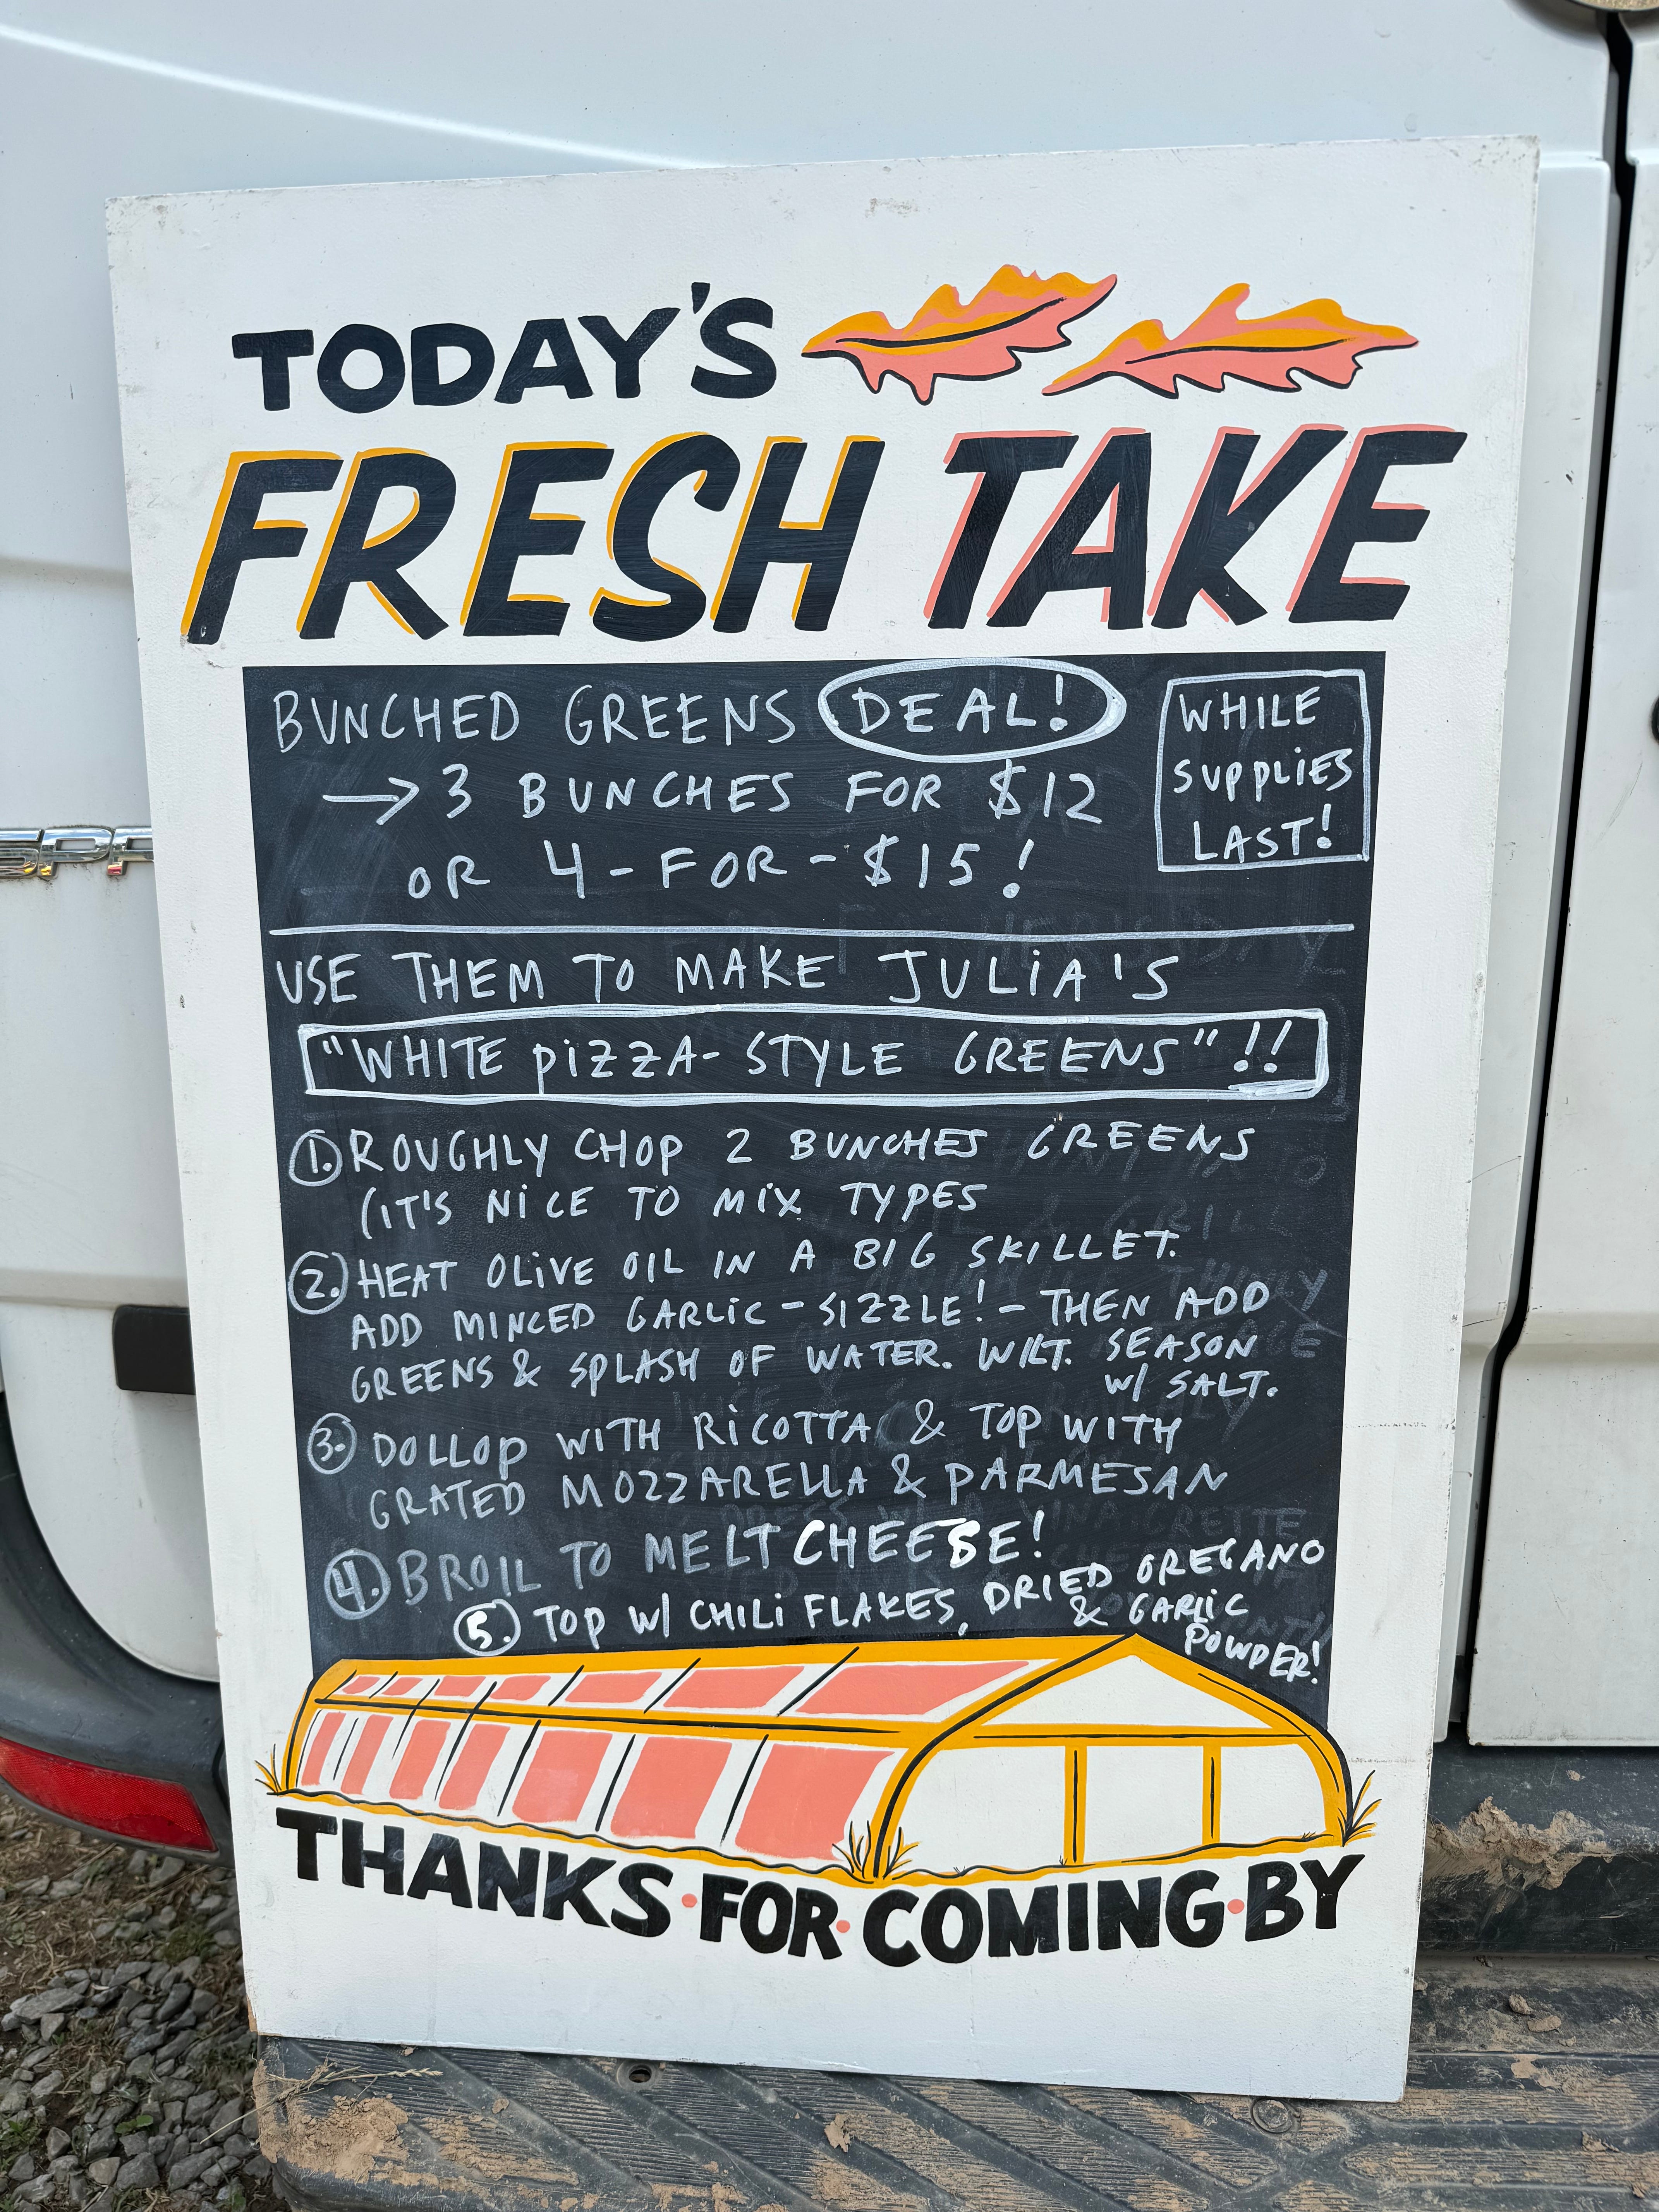 TODAY'S
FRESH TAKE
BUNCHED GREENS DEAL!
→ 3 BUNCHES FOR $12
OR 4-FOR-$15!
WHILE
SUPPLIES
LAST!
USE THEM TO MAKE JULIA'S
"WHITE PIZZA-STYLE GREENS"!!
1. ROUGHLY CHOP 2 BUNCHES GREENS
(IT'S NICE TO MIX TYPES
2. HEAT OLIVE OIL IN A BIG SKILLET.
ADD MINCED GARLIC - SIZZLE! - THEN ADD
GREENS & SPLASH OF WATER. WILT. SEASON
W/ SALT.
3. DOLLOP WITH RICOTTA & TOP WITH
GRATED MOZZARELLA & PARMESAN
4. BROIL TO MELT CHEESE!
5. TOP W/ CHILI FLAKES, DRIED OREGANO
& GARLIC
POWDER!
THANKS·FOR·COMING·BY